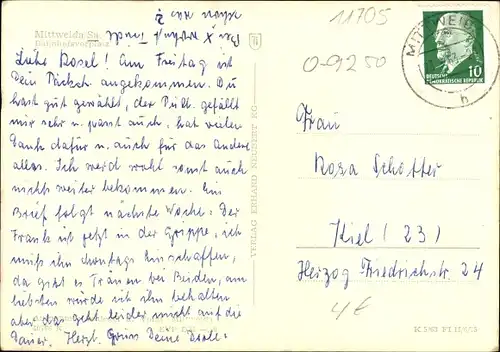 Mittweida Sa.
Bahnhofsvorplatz
Liebe Rosel! Am Freitag ist
Dein Päckch. angekommen. Du
hast gut gewählt, der Pulli gefällt
mir sehr u. passt auch, hat vielen
Dank dafür u. auch für das Andere
alles. Ich werd wohl sonst auch
nichts weiter bekommen. Ein
Brief folgt nächste Woche. Der
Frank ist jetzt in der Grippe, ich
muß ihn Sonntags hinschaffen,
da gibt es Tränen bei Beiden, am
liebsten würde ich ihn behalten
aber das geht leider nicht auf die
Dauer. Herzl. Grüss Deine
VERLAG ERHARD NEUBERT KG
11705
0-9250
MITTWEIDA
b
DEUTSCHE
DEMOKRATISCHE REPUBLIK
10
Frau
Rosa Schotter
Kiel (23)
Herzog Friedrichstr. 24
4€